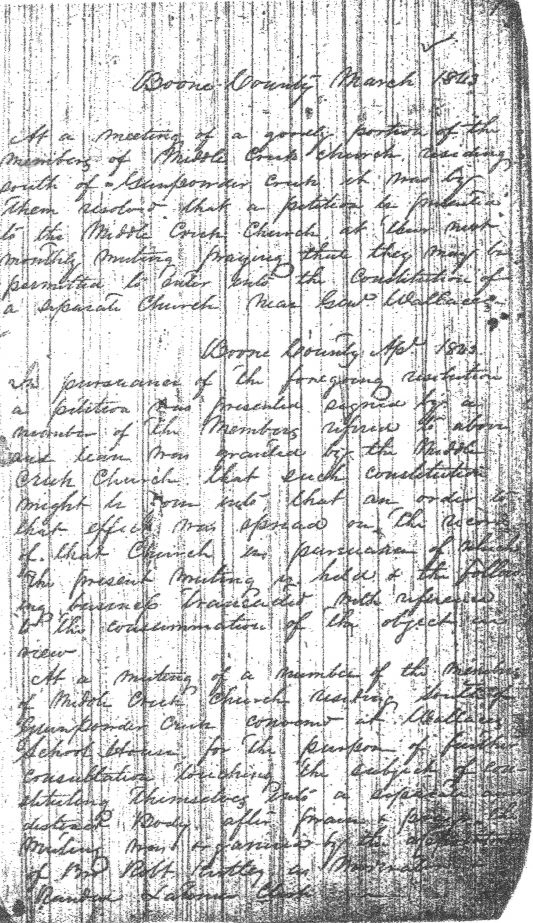 Boone County March 1843
At a meeting of a goodly portion of the
members of Middle Creek Church residing
south of Gunpowder Creek it was by
them resolved that a petition be presented
to the Middle Creek Church at their next
monthly meeting praying that they may be
permitted to enter into the Constitution of
a seperate Church near Genl Wallaces
Boone County Apl 1843
In pursuance of the foregoing resolution
a petition was presented signed by a
number of the members refired to above
and leave was granted by the Middle
Creek Church that such constitution
might be into that an order to
that effect was spread on the record
of that Church in pursuance of which
the present meeting is held & the follow
ing business transacted with reference
to the consummation of the object in
view
At a meeting of a number of the members
of Middle Creek Church residing South of
Gunpowder Creek convened at Wallaces
School House for the purpose of further
consultation touching the subject of con-
stituting themselves into a
distinct Body after praise & prayer the
meeting was organized by the
of Bro Robt Kirtley as Moderator
Clerk